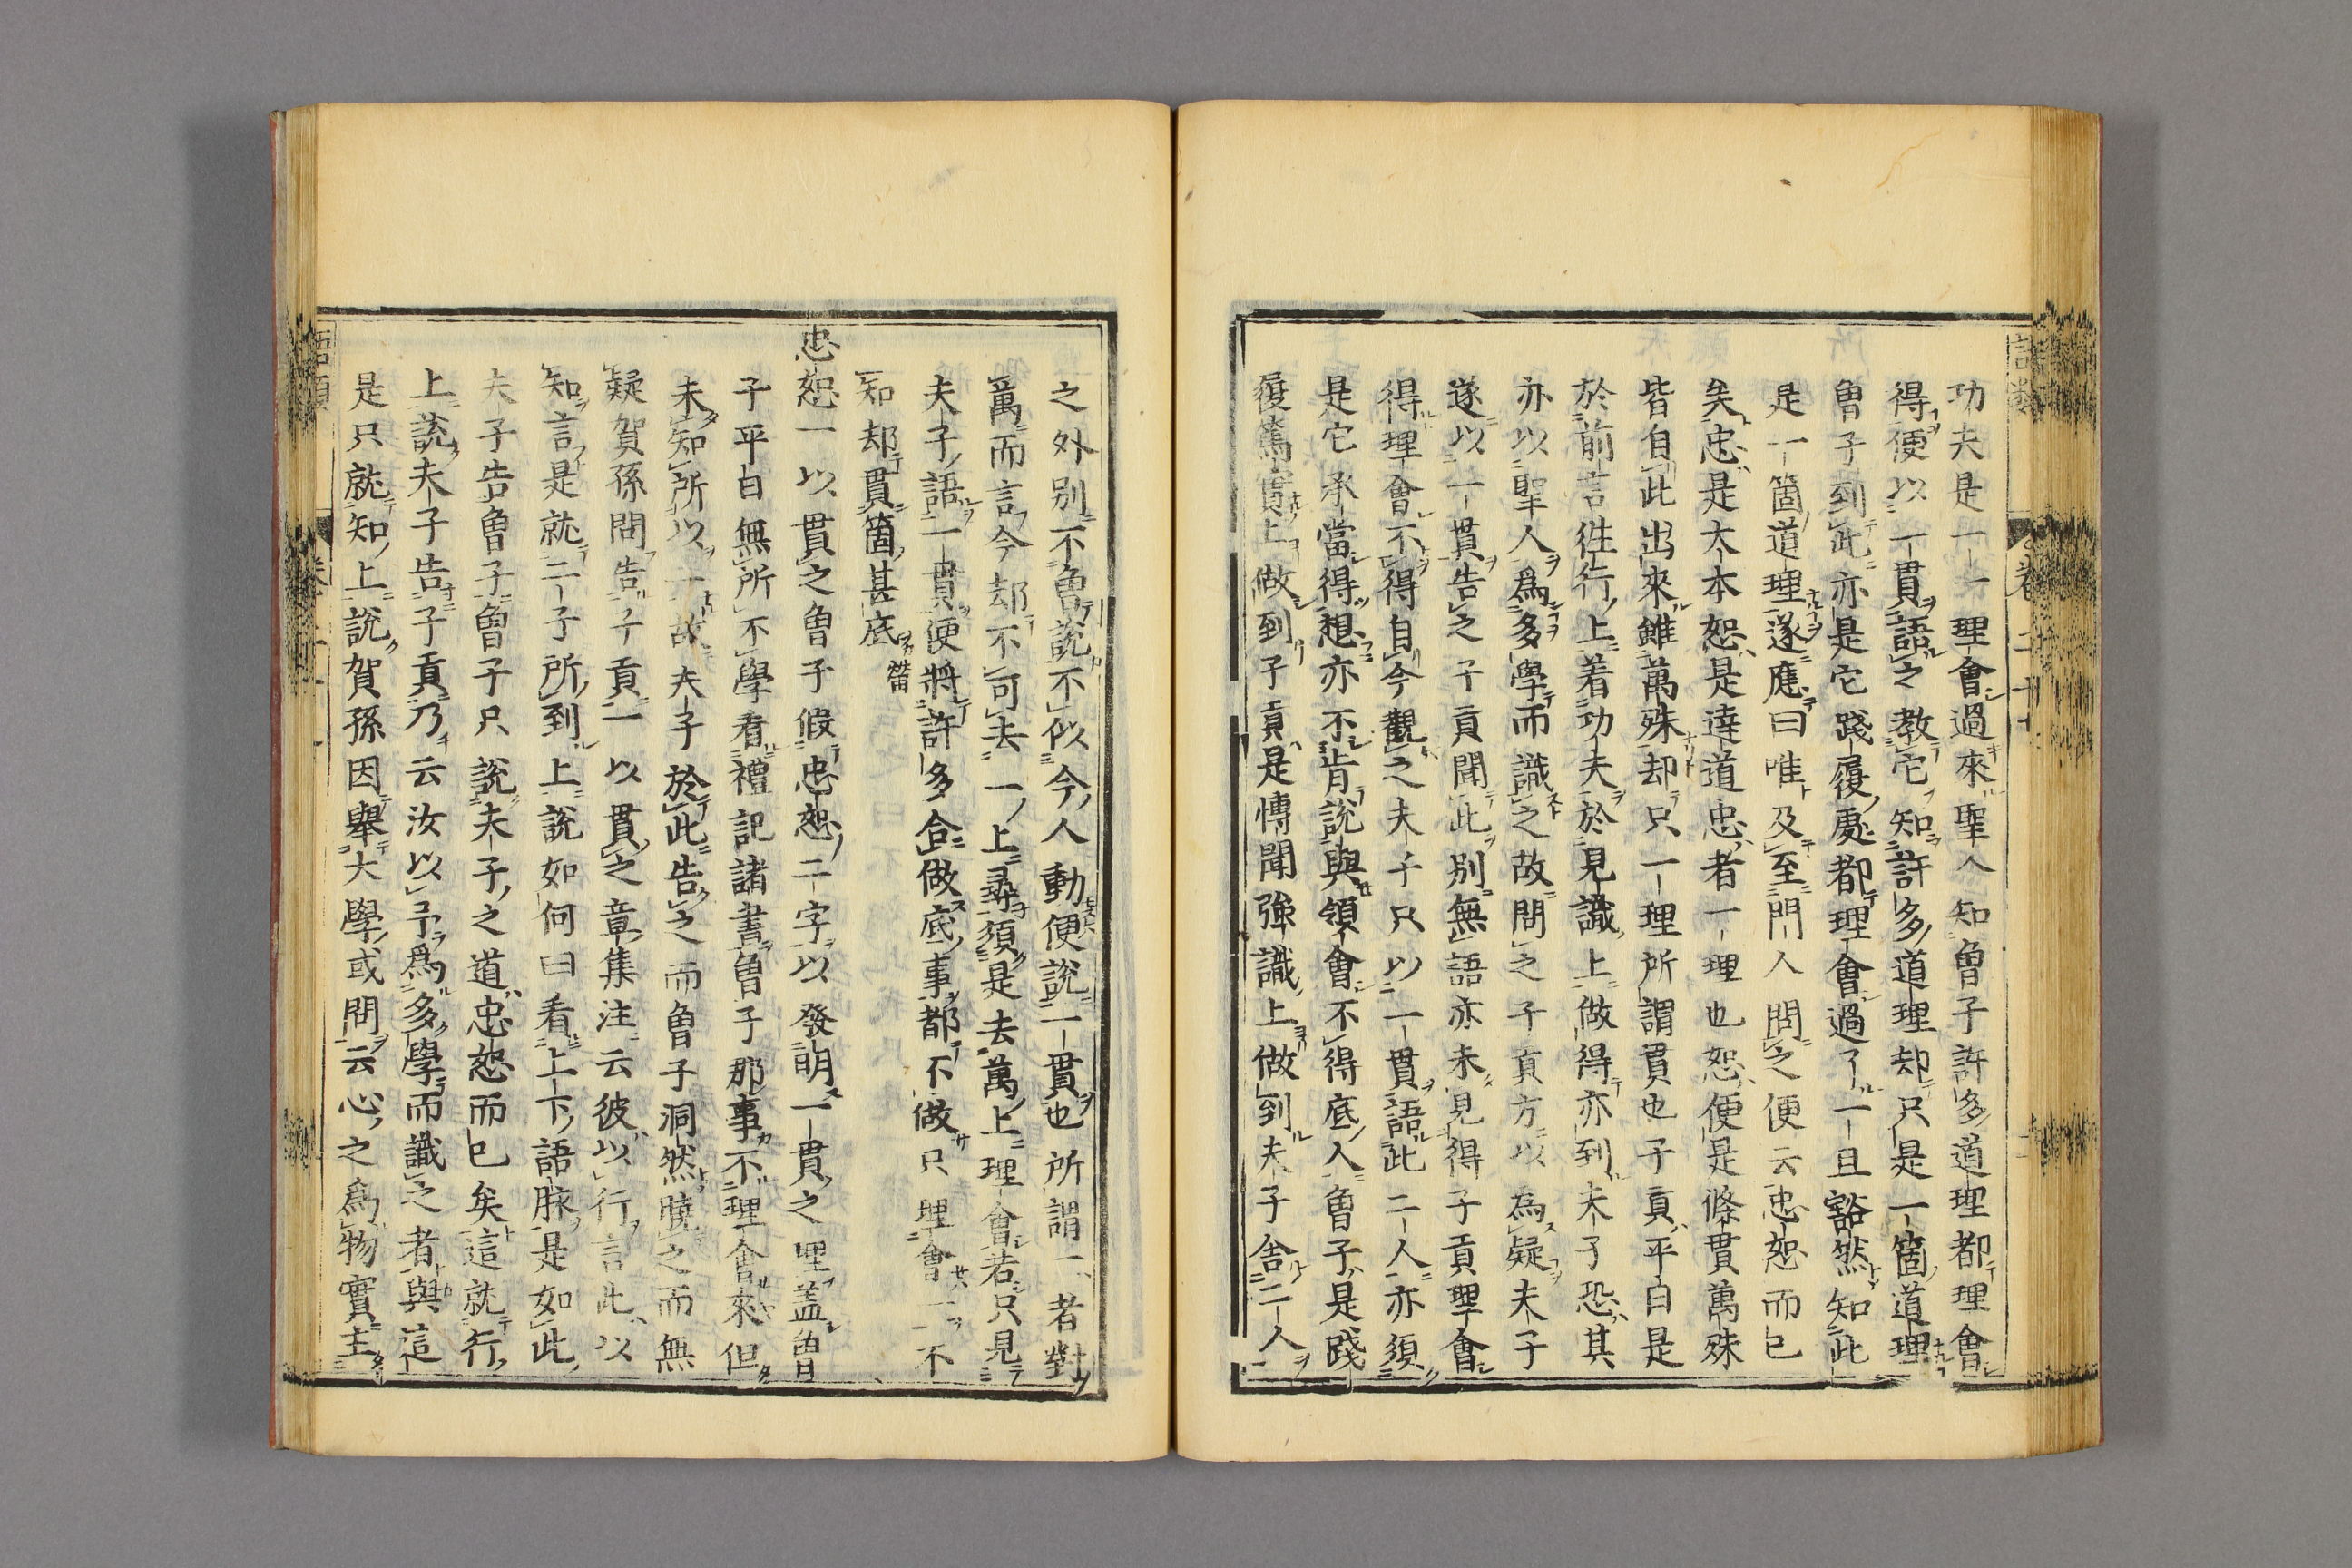 功夫是一一理會過來聖人知曾子許多道理都理會
得便以一貫語之教它知許多道理却只是一箇道理
曾子到此亦是它踐履處都理會過了一旦豁然知此
是一箇道理遂應曰唯及至門人問之便云忠恕而已
矣忠是大本恕是達道忠者一理也恕便是條貫萬殊
皆自此出來雖萬殊却只一理所謂貫也子貢平日是
於前言徃行上着功夫於見識上做得亦到夫子恐其
亦以聖人爲多學而識之故問之子貢方以爲疑夫子
遂以一貫告之子貢聞此別無語亦未見得子貢理會
得理會不得自今觀之夫子只以一貫語此二人亦須
是它承當得想亦不肯說與領會不得底人曾子是踐
履篤實上做到子貢是慱聞強識上做到夫子舎二人
之外別不曾說不似今人動便說一貫也所謂一者對
萬而言今却不可去一上尋須是去萬上理會若只見
夫子語一貫便將許多合做底事都不做只理會一不
知却貫箇甚底 㽦
忠恕一以貫之曾子假忠恕二字以發明一貫之理盖曾
子平日無所不學看禮記諸書曾子那事不理會來但
未知所以一故夫子於此告之而曾子洞然曉之而無
疑賀孫問告子貢一以貫之章集注云彼以行言此以
知言是就二子所到上說如何曰看上下語脉是如此
夫子告曾子曾子只說夫子之道忠恕而已矣這就行
上說夫子告子貢乃云汝以予爲多學而識之者與這
是只就知上說賀孫因舉大學或問云心之爲物實主